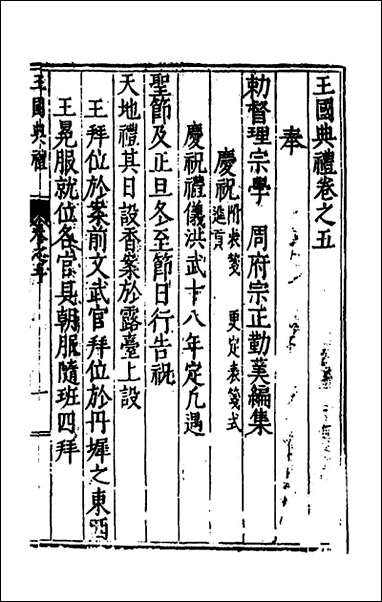 王國典禮卷之五
奉
勅督理宗學　周府宗正勤羙編集
慶祝附表箋進貢　更定表箋式
慶祝禮儀洪武十八年定凡遇
聖節及正旦冬至節日行告祝
天地禮其日設香案於露臺上設
王拜位於案前文武官拜位於丹墀之東西
王冕服就位各官具朝服隨班四拜
王國典禮　卷之五　一